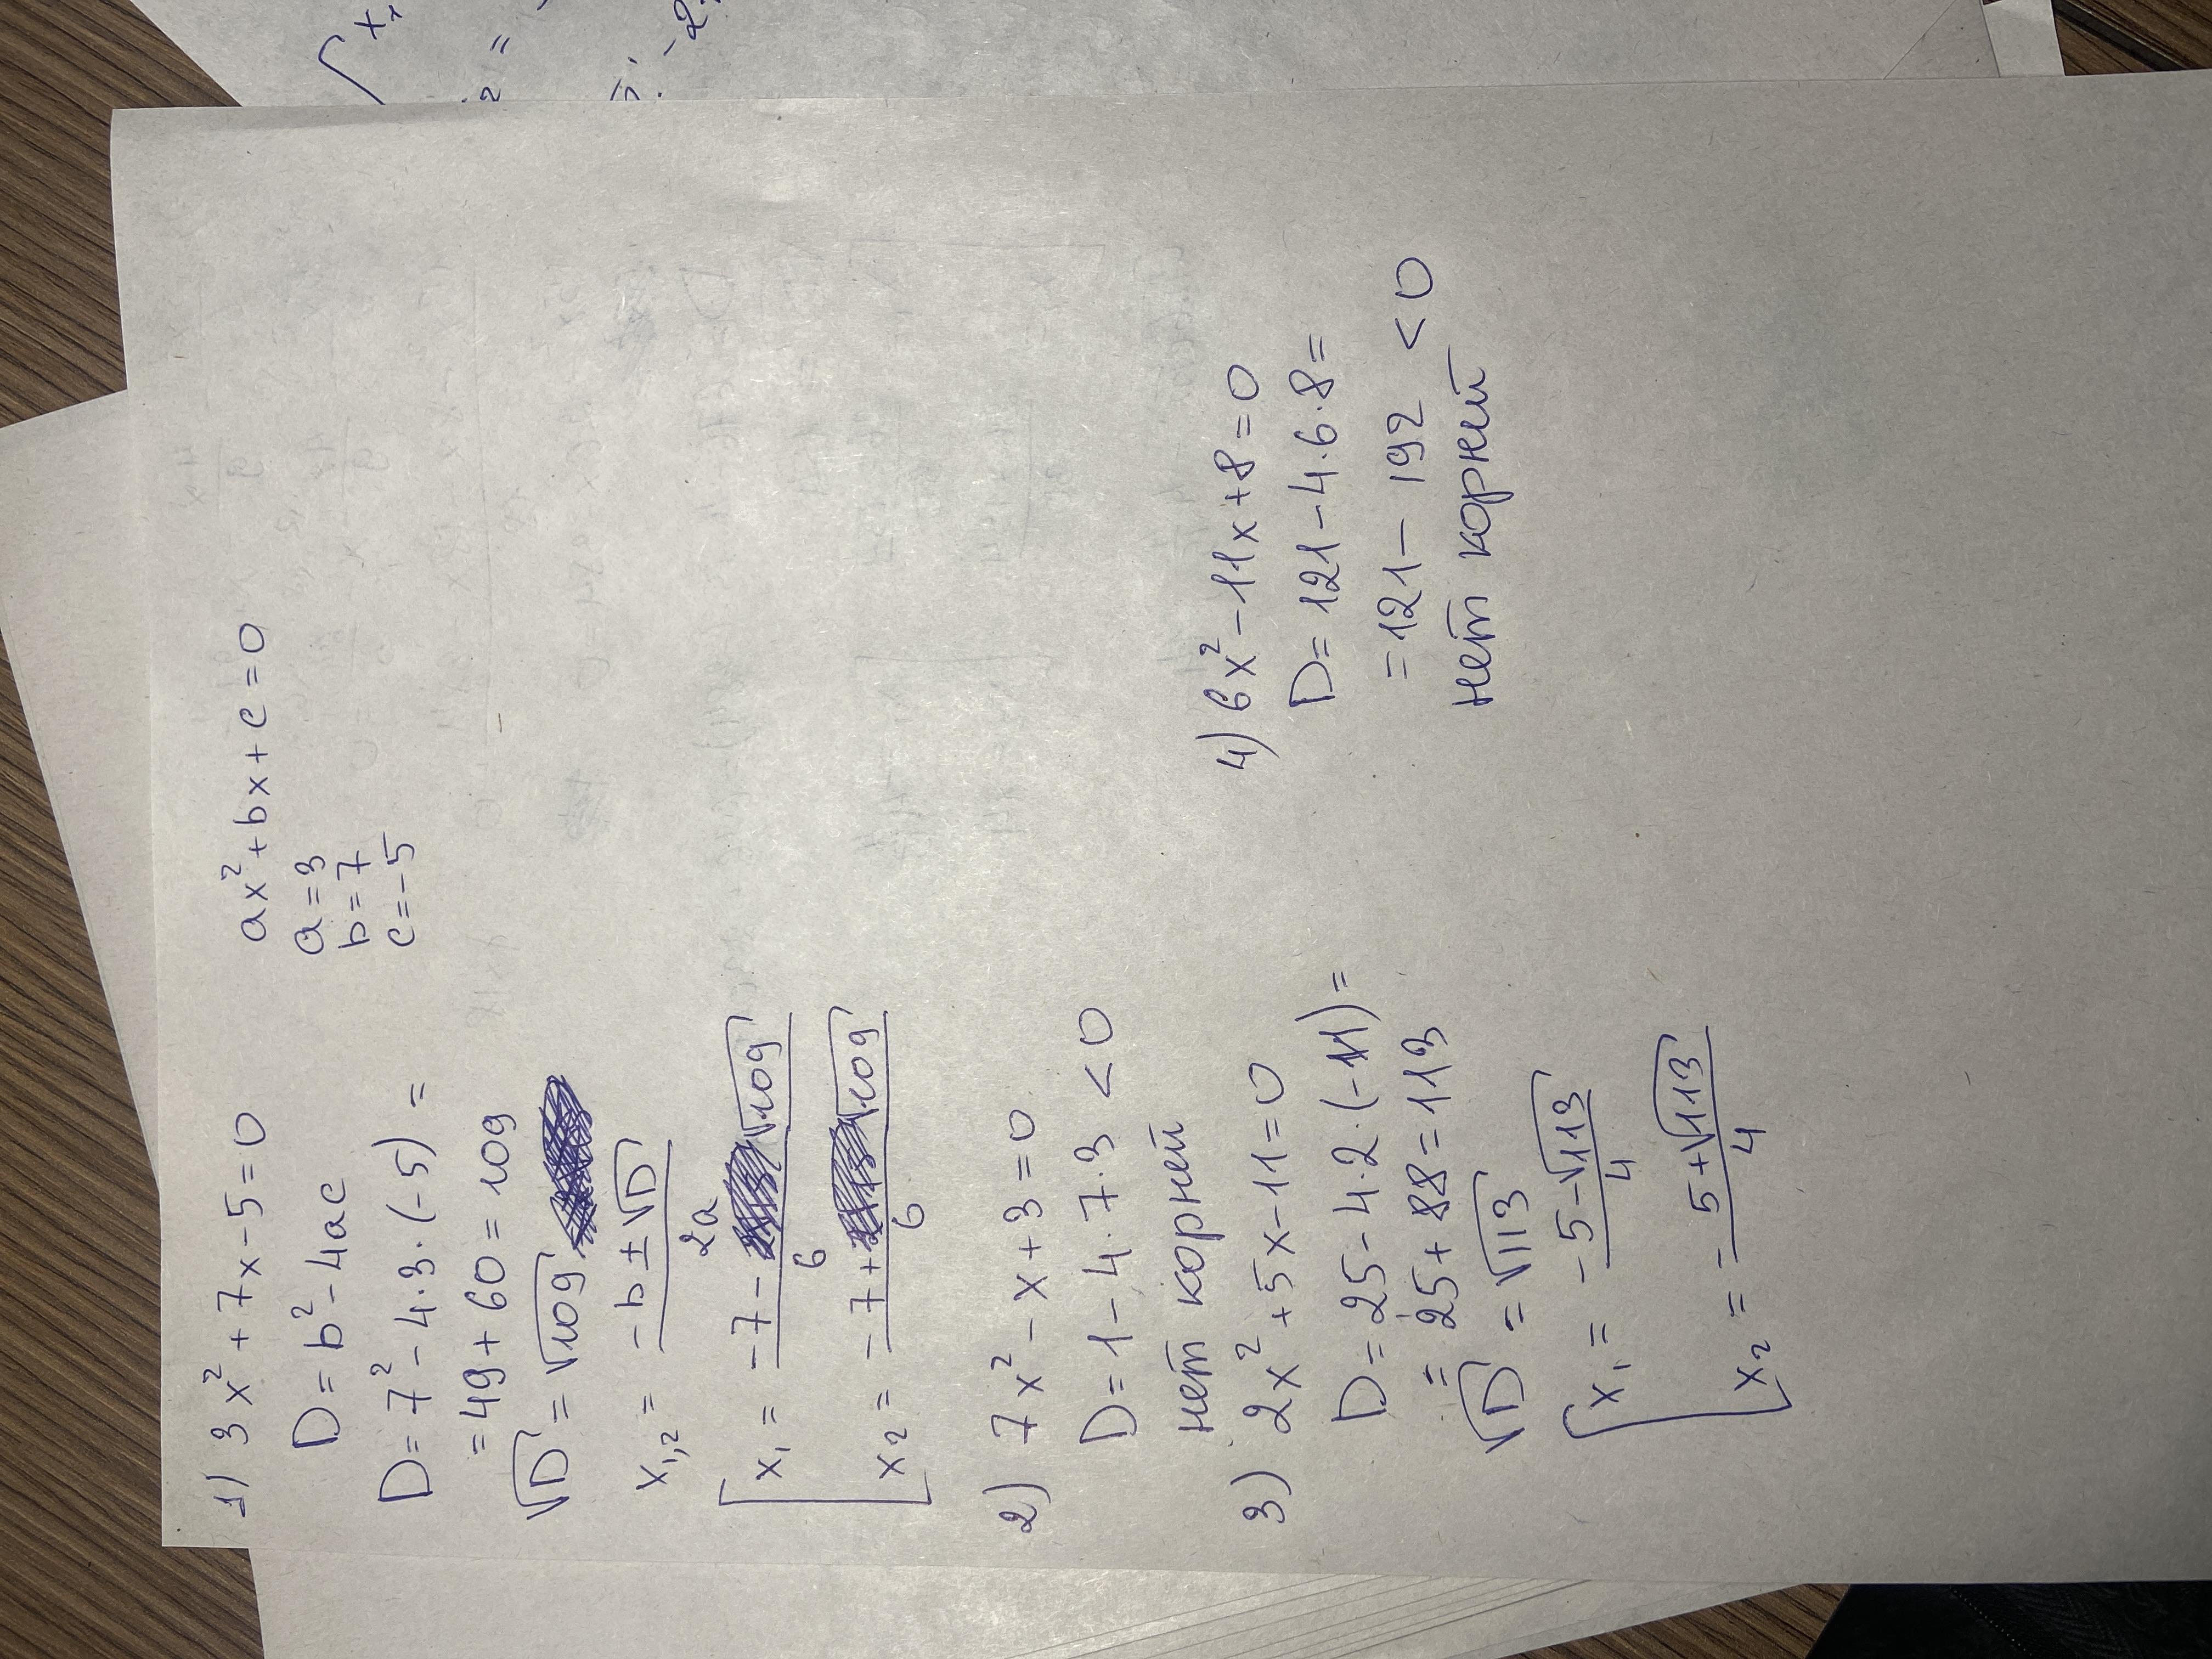 1) 3x² + 7x - 5 = 0
ax² + bx + c = 0
D = b² - 4ac
a = 3
b = 7
c = -5
D = 7² - 4·3·(-5) =
= 49 + 60 = 109
√D = √109
x₁,₂ = (-b ± √D) / 2a
x₁ = (-7 - √109) / 6
x₂ = (-7 + √109) / 6
2) 7x² - x + 3 = 0
D = 1 - 4·7·3 < 0
нет корней
3) 2x² + 5x - 11 = 0
D = 25 - 4·2·(-11) =
= 25 + 88 = 113
√D = √113
x₁ = (-5 - √113) / 4
x₂ = (-5 + √113) / 4
4) 6x² - 11x + 8 = 0
D = 121 - 4·6·8 =
= 121 - 192 < 0
нет корней